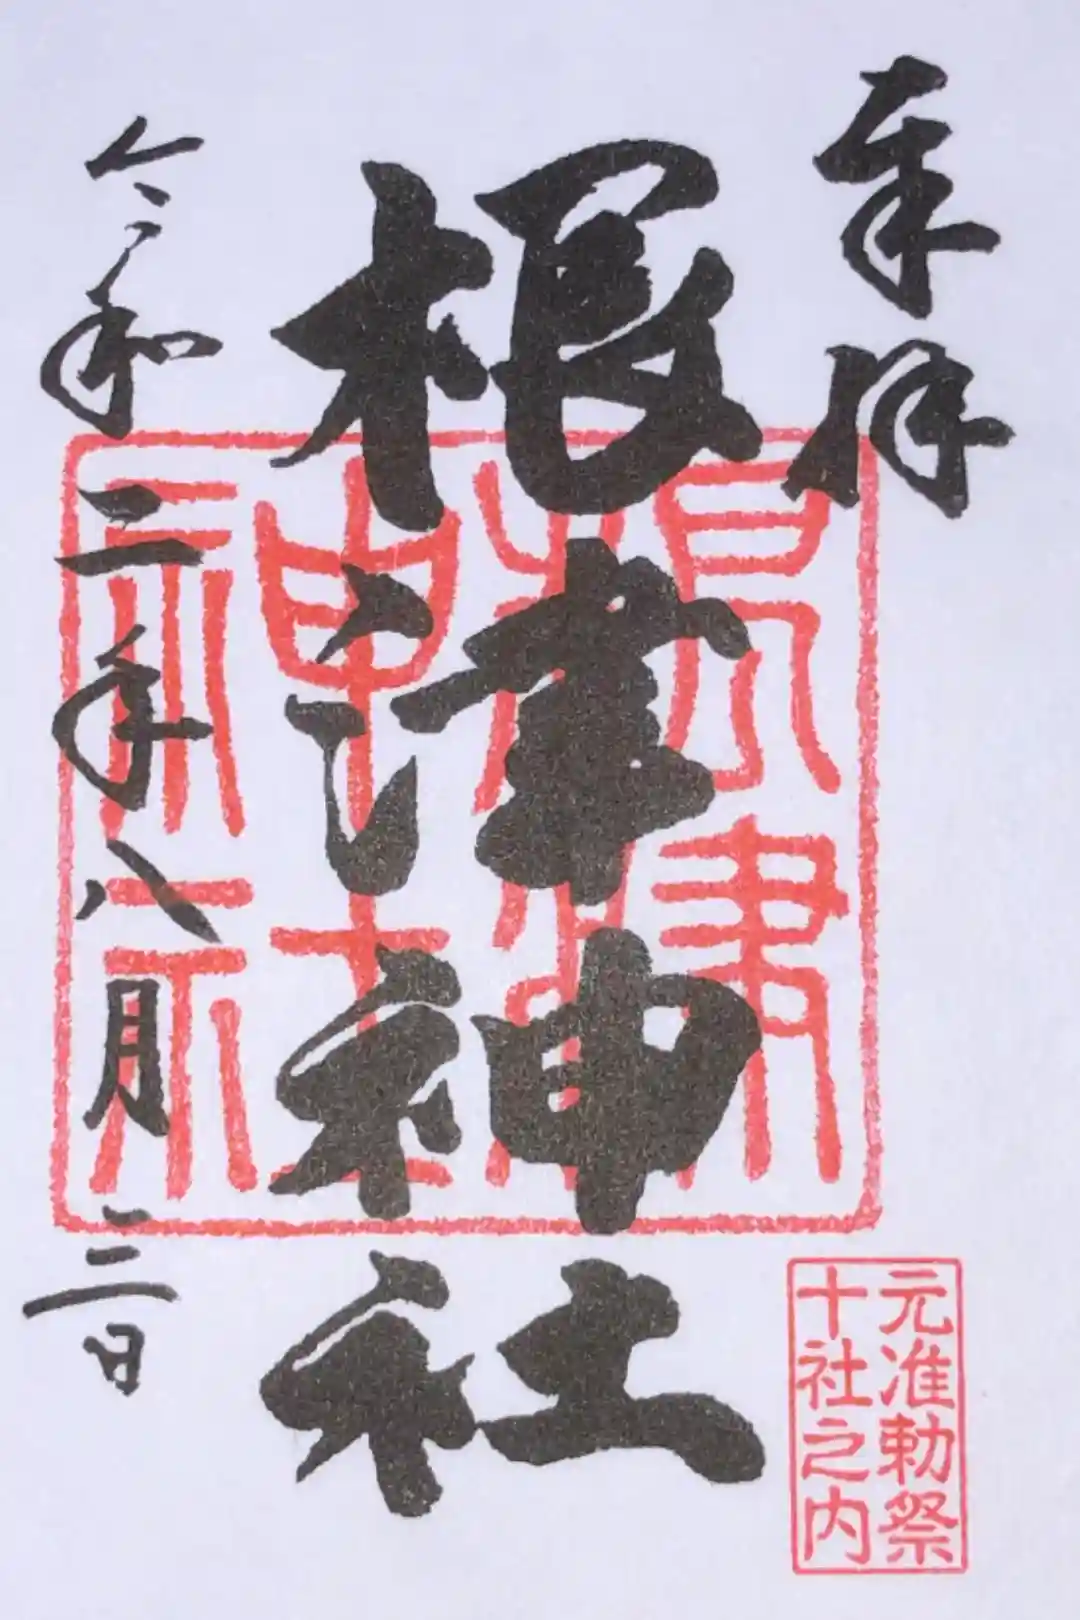 奉拝
根津神社
令和二年八月二日
根津
神社
元准勅祭
十社之内